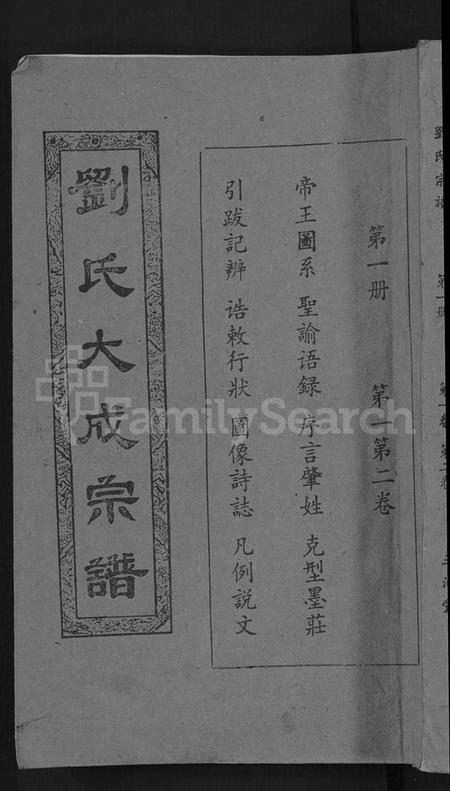 劉氏大成宗譜
第一册 第一第二卷
帝王圖系 聖諭语録 序言肇姓 克型墨莊
引跋記辨 诰敕行狀 圖像詩誌 凡例説文
劉氏宗譜
FamilySearch